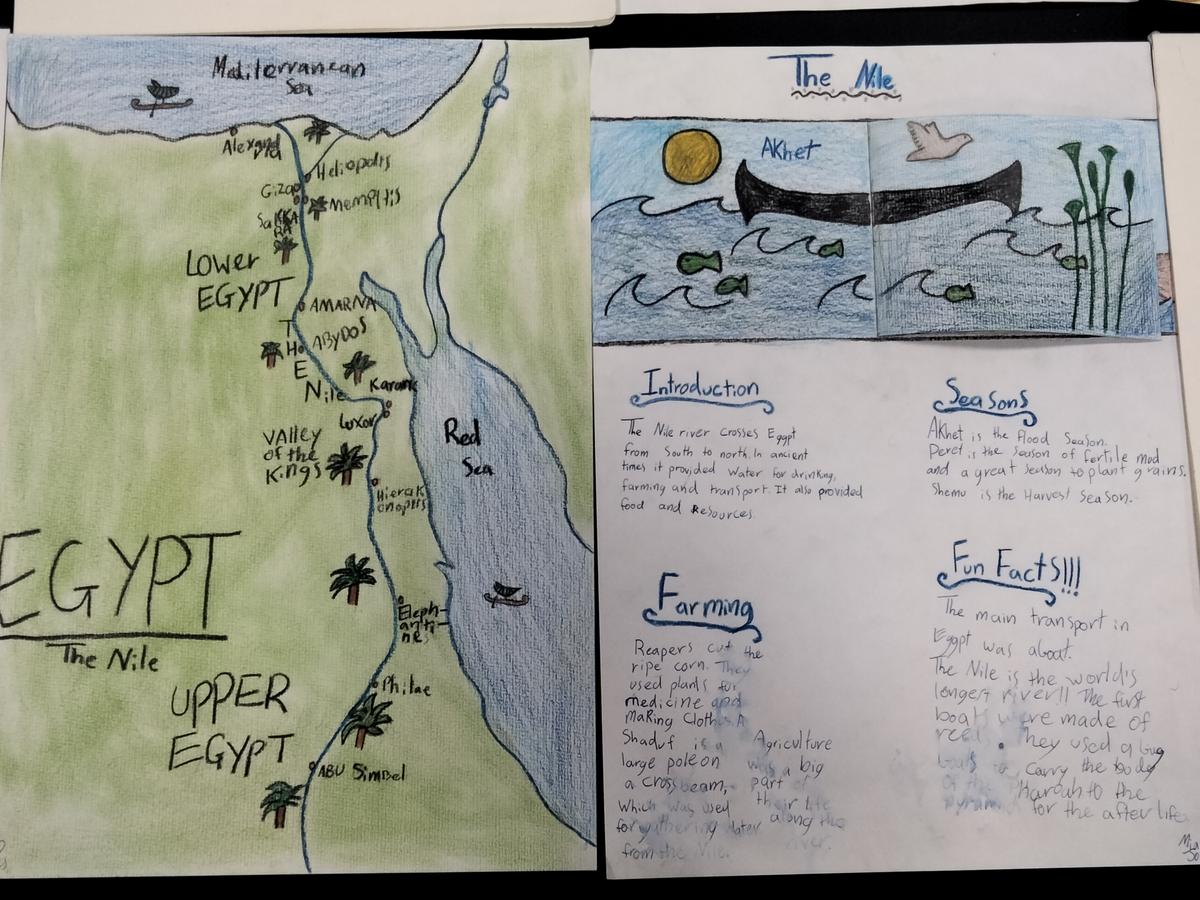 Mediterranean
Sea
Alexandria
Heliopolis
Giza
Memphis
SaKKARA
Lower
EGYPT
AMARNA
ABYDOS
THE Nile
Karank
Luxor
VAlley
of the
Kings
Red
Sea
Hierak
onopolis
EGYPT
The Nile
Eleph-
anti-
ne
Philae
UPPER
EGYPT
ABU Simbel
The Nile
AKhet
Introduction
The Nile river crosses Egypt
from South to north. In ancient
times it provided Water for drinking,
farming and transport. It also provided
food and Resources.
Seasons
AKhet is the Flood Season.
Peret is the Season of fertile mud
and a great Season to plant grains.
Shemu is the Harvest Season.
Farming
Reapers cut the
ripe corn. They
used plants for
medicine and
making Clothes. A
Shaduf is a
large pole on
a crossbeam,
which was used
for gathering water
from the Nile.
Agriculture
was a big
part of
their life
along the
river.
Fun Facts!!!
The main transport in
Egypt was aboat.
The Nile is the world's
longest river!! The first
boats were made of
They used a big
carry the body
of the Pharaoh to the
for the after life